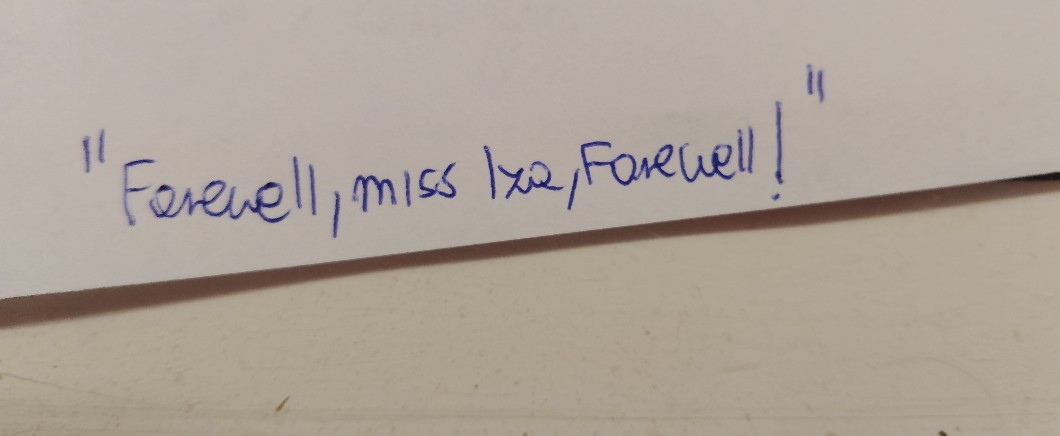 "Farewell, miss Iza, Farewell!"